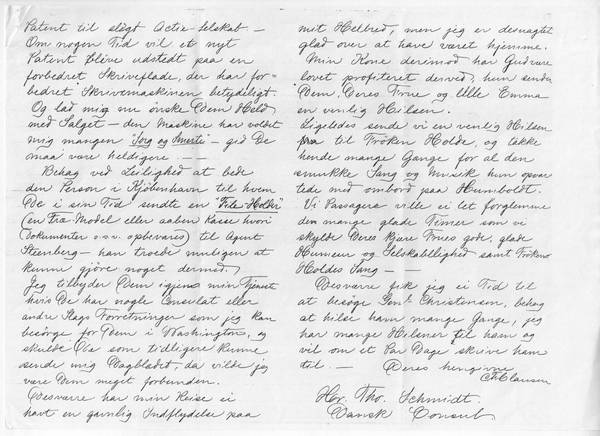 Patent til sligt Actie Selskab —
Om nogen Tid vil et nyt
Patent blive udstedt paa en
forbedret Skriveflade, der har for=
bedret Skrivemaskinen betydeligt.
Og lad mig nu ønske Dem Held
med Salget — den Maskine har voldet
mig mangen "Sorg og Smerte" — gid De
maa være heldigere. —
Behag ved Leilighed at bede
den Person i Kjöbenhavn til hvem
De i sin Tid sendte en "File-Holder"
(en Træ-Model eller aaben Kasse hvori
Dokumenter o.s.v. opbevares) til Agent
Steenberg — han troede muligen at
kunne gjöre noget dermed.
Jeg tilbyder Dem igjen min Tjeneste
hvis De har nogle Consulat eller
andre Slags Forretninger som jeg kan
besørge for Dem i Washington, og
skulde De som tidligere kunne
sende mig Dagbladet, da vilde jeg
være Dem meget forbunden.
Desværre har min Reise ei
havt en gavnlig Indflydelse paa
mit Helbred, men jeg er desuagtet
glad over at have været hjemme.
Min Kone derimod har Gudvære
lovet profiteret derved, hun sender
Dem, Deres Frue og Elle Emma
en venlig Hilsen.
Ligeledes sende vi en venlig Hilsen
til Fröken Holde, og takke
hende mange Gange for al den
smukke Sang og Musik hun opvar
tede med ombord paa Humboldt.
Vi Passagere ville ei let forglemme
den mange glade Timer som vi
skylde Deres kjære Frues gode, glade
Humeur og Selskabelighed samt Fröken
Holdes Sang — —
Desværre fik jeg ei Tid til
at besöge Genl. Christensen, behag
at hilse ham mange Gange, jeg
har mange Hilsner til ham og
vil om et Par Dage skrive ham
til. — Deres hengivne
Clausen
Hr. Tho. Schmidt.
Dansk Consul.